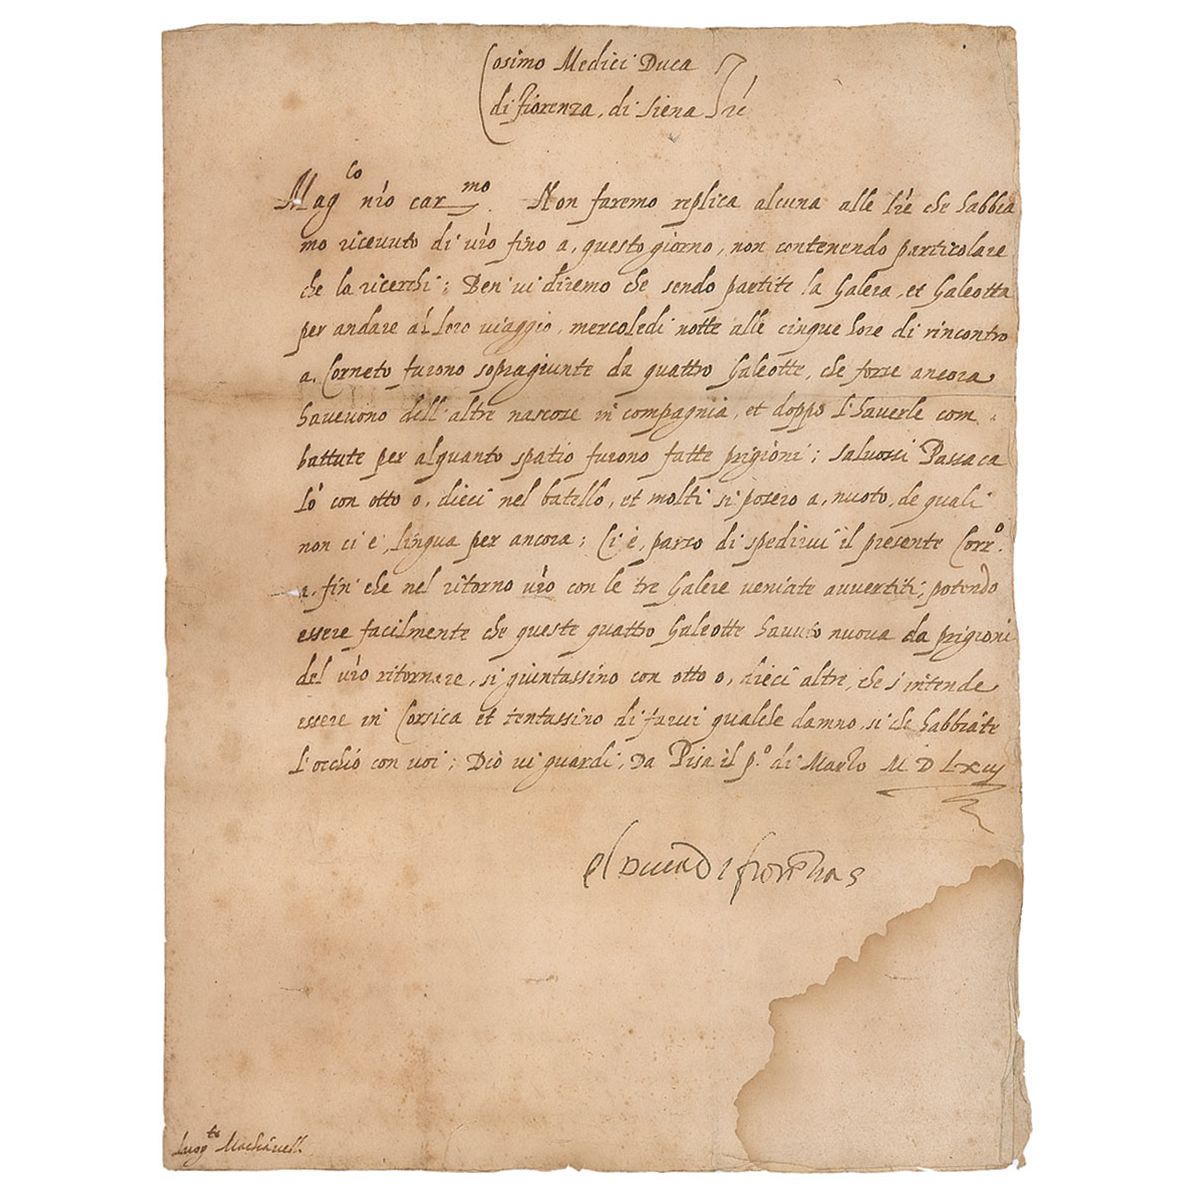 Cosimo Medici Duca
di fiorenza, di Siena &c
Mag.co nro car.mo Non faremo replica alcuna alle lre che habbia
mo ricevuto di vro fino a, questo giorno, non contenendo particolare
che la ricerchi; Ben' vi diremo che sendo partite la Galera, et Galeotta
per andare al loro viaggio, mercoledi notte alle cinque hore di rincontro
a, Corneto furono sopragiunte da quattro Galeotte, che forse ancora
havevono dell'altre nascose in compagnia, et doppo l'haverle com
battute per alquanto spatio furono fatte prigioni; salvossi Passaca
lo' con otto o, dieci nel batello, et molti si posero a, nuoto, de quali
non ci e, lingua per ancora; Ci e, parso di spedirvi il presente Corr.o
a, fin' che nel ritorno vro con le tre Galere veniate avvertiti, potendo
essere facilmente che queste quattro Galeotte havuto nuova da prigioni
del vro ritornare, si giuntassino con otto o, dieci altre, che s'intende
essere in Corsica et tentassino di farvi qualche damno, si che habbiate
l'occhio con voi; Dio vi guardi, Da Pisa il p.o di Marzo M D Lxiij
el Duca di fiorenza
Luog.te Machiavell